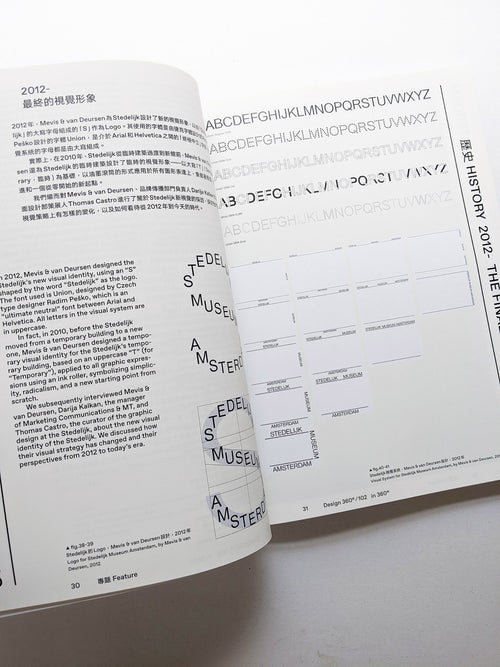 2012-
最終的視覺形象
2012年,Mevis & van Deursen為Stedelijk設計了新的視覺形象,以
lijk」的大寫字母組成的「S」作為Logo。其使用的字體是由捷克字體設計
Peško設計的字體Union,是介於Arial和Helvetica之間的
覺系統的字母都是由大寫組成。
實際上,在2010年,Stedelijk從臨時建築過渡到新館前,Mevis & van
sen還為Stedelijk的臨時建築設計了臨時的視覺形象
rary,臨時)為基礎,以油墨滾筒的形式應用於所有圖形表達上,
進和一個從零開始的新起點。
我們隨而對Mevis & van Deursen、品牌傳播部門負責人Darija
面設計部策展人Thomas Castro進行了關於Stedelijk新視覺
視覺策略上有怎樣的變化,以及如何看待從2012年到今天的時代。
n 2012, Mevis & van Deursen designed the
Stedelijk's new visual identity, using an "S"
shaped by the word "Stedelijk" as the logo.
The font used is Union, designed by Czech
type designer Radim Peško, which is an
"ultimate neutral" font between Arial and
Helvetica. All letters in the visual system are
in uppercase.
In fact, in 2010, before the Stedelijk
moved from a temporary building to a new
one, Mevis & van Deursen designed a tempo-
rary visual identity for the Stedelijk's tempo-
rary building, based on an uppercase "T" (for
"Temporary"), applied to all graphic expres-
sions using an ink roller, symbolizing simplic-
ity, radicalism, and a new starting point from
scratch.
We subsequently interviewed Mevis &
van Deursen, Darija Kalkan, the manager
of Marketing Communications & MT, and
Thomas Castro, the curator of the graphic
design at the Stedelijk, about the new visual
identity of the Stedelijk. We discussed how
their visual strategy has changed and their
perspectives from 2012 to today's era.
STEDELI
MUSEU
AMSTERD
STEDELI
MUSEU
AMSTERD
▲ fig.38-39
Stedelijk的Logo,Mevis & van Deursen設計,2012年
Logo for Stedelijk Museum Amsterdam, by Mevis & van
Deursen, 2012
30 專題 Feature
ABCDEFGHIJKLMNOPQRSTUVWXYZ
ABCDEFGHIJKLMNOPQRSTUVWXYZ
ABCDEFGHIJKLMNOPQRSTUVWXYZ
ABCDEFGHIJKLMNOPQRSTUVWXYZ
ABCDEFGHIJKLMNOPQRSTUVWXYZ
AMSTERDAM
STEDELIJK MUSEUM
AMSTERDAM
AMSTERDAM
STEDELIJK
MUSEUM
AMSTERDAM
▲ fig.40-41
Stedelijk視覺系統,Mevis & van Deursen設計,2012年
Visual System for Stedelijk Museum Amsterdam, by Mevis & van Deursen, 2012
31 Design 360° /102 in 360°
歷史 HISTORY 2012- THE FIN